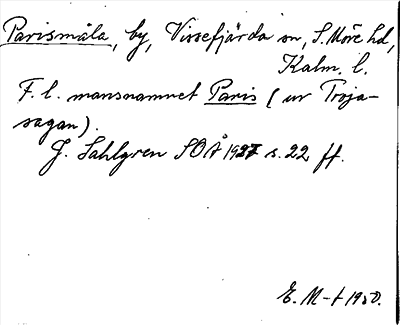 Parismåla, by, Vissefjärda sn, S. Möre hd,
Kalm. l.
F. l. mansnamnet Paris (ur Troja-
sagan).
J. Sahlgren SOÅ 1927 s. 22 ff.
E. M-t 1950.